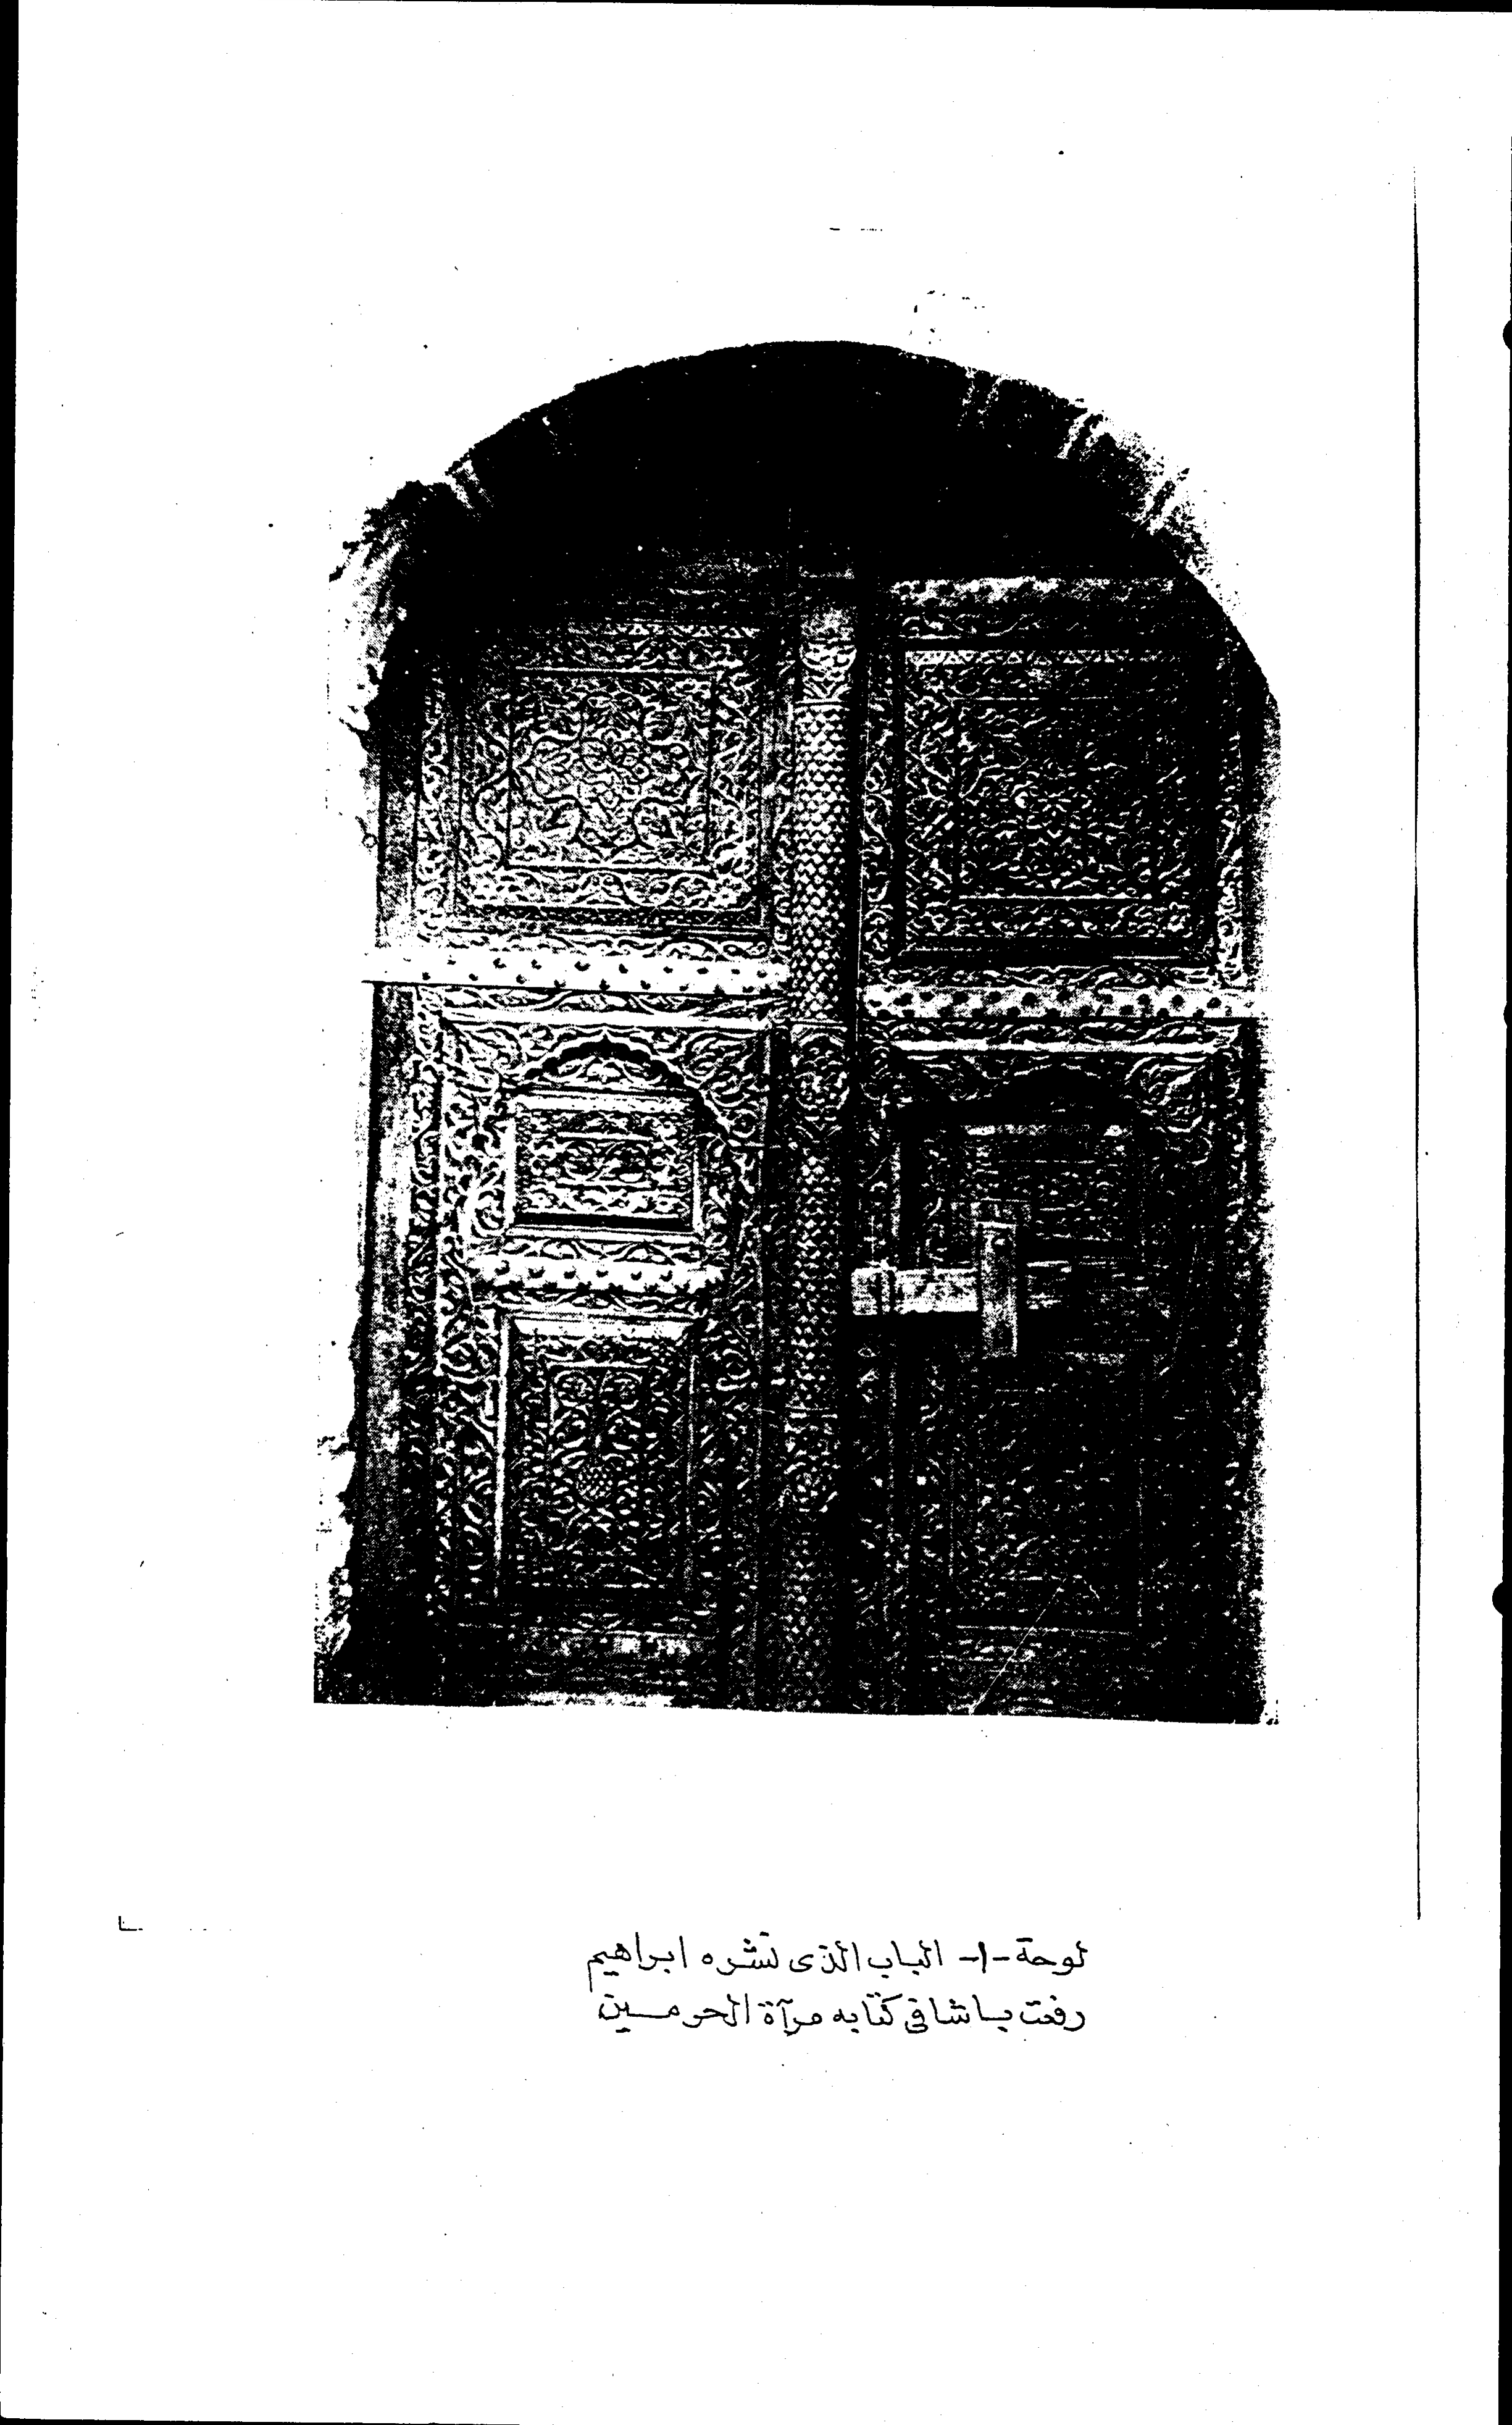 لوحة -١- الباب الذى نشره ابراهيم
رفعت باشا في كتابه مرآة الحرمين